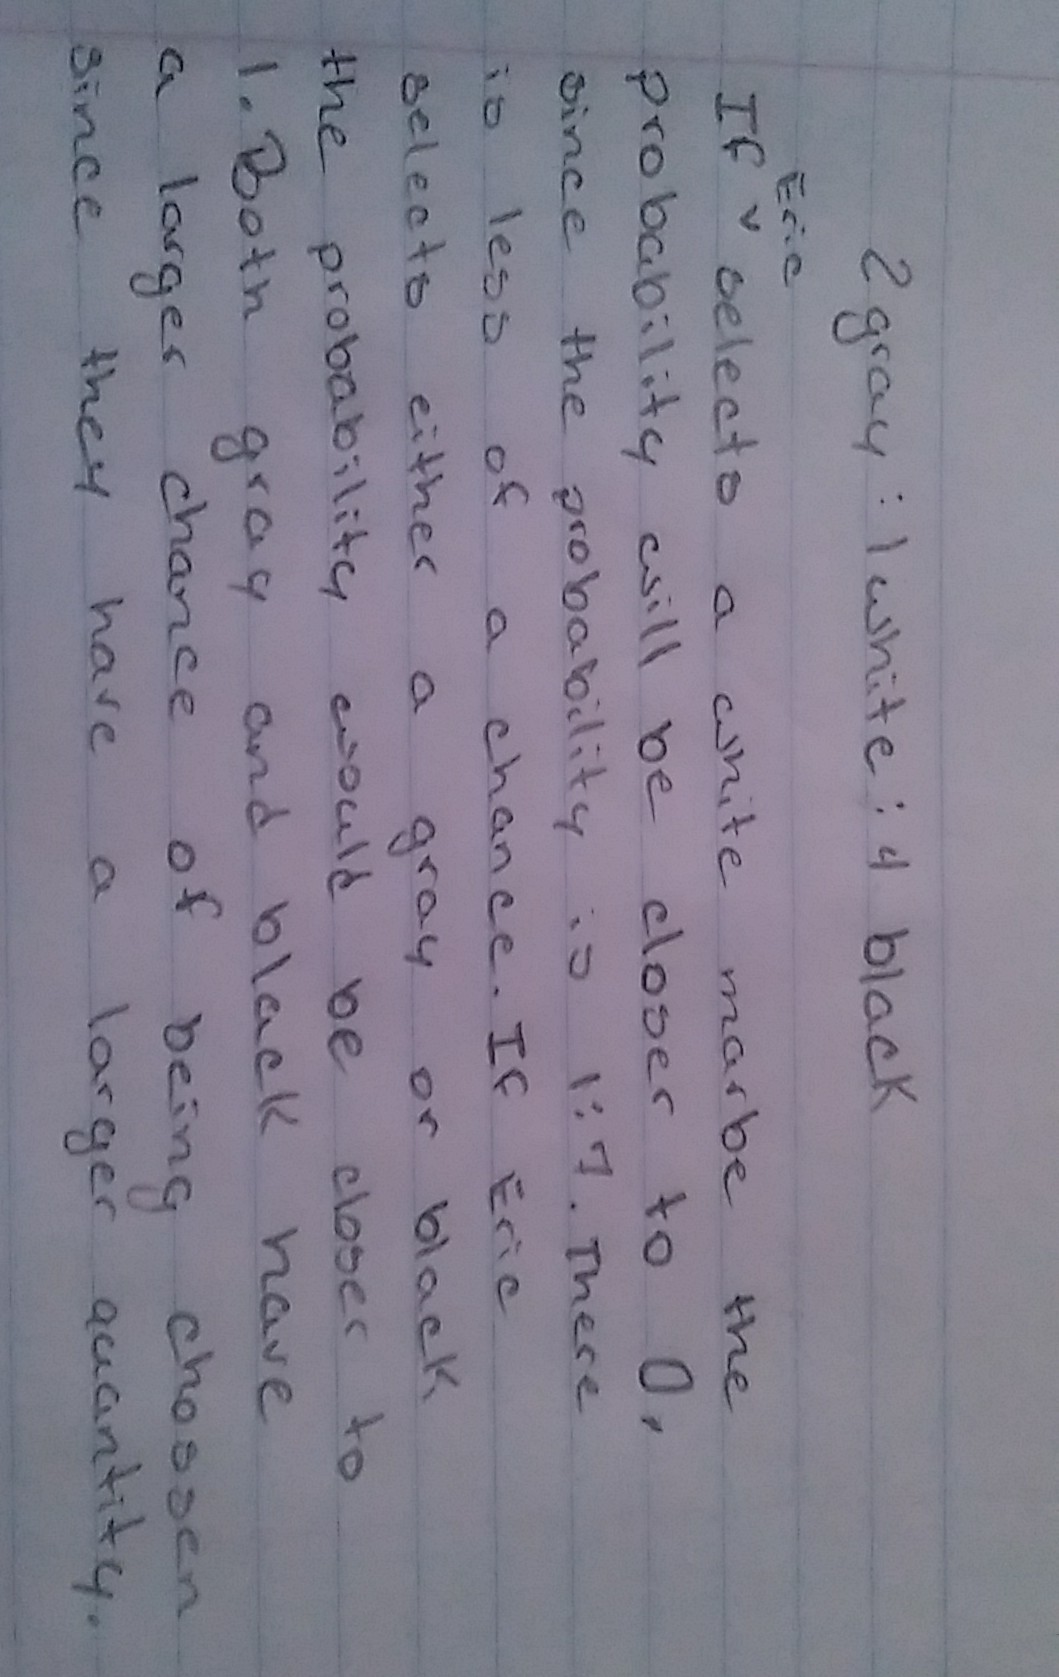 2 gray : 1 white : 4 black
Eric
If v selects a white marbe the
probability will be closer to 0,
since the probability is 1:7. There
is less of a chance. If Eric
selects either a gray or black
the probability would be closer to
1. Both gray and black have
a larger chance of being chosen
since they have a larger quantity.